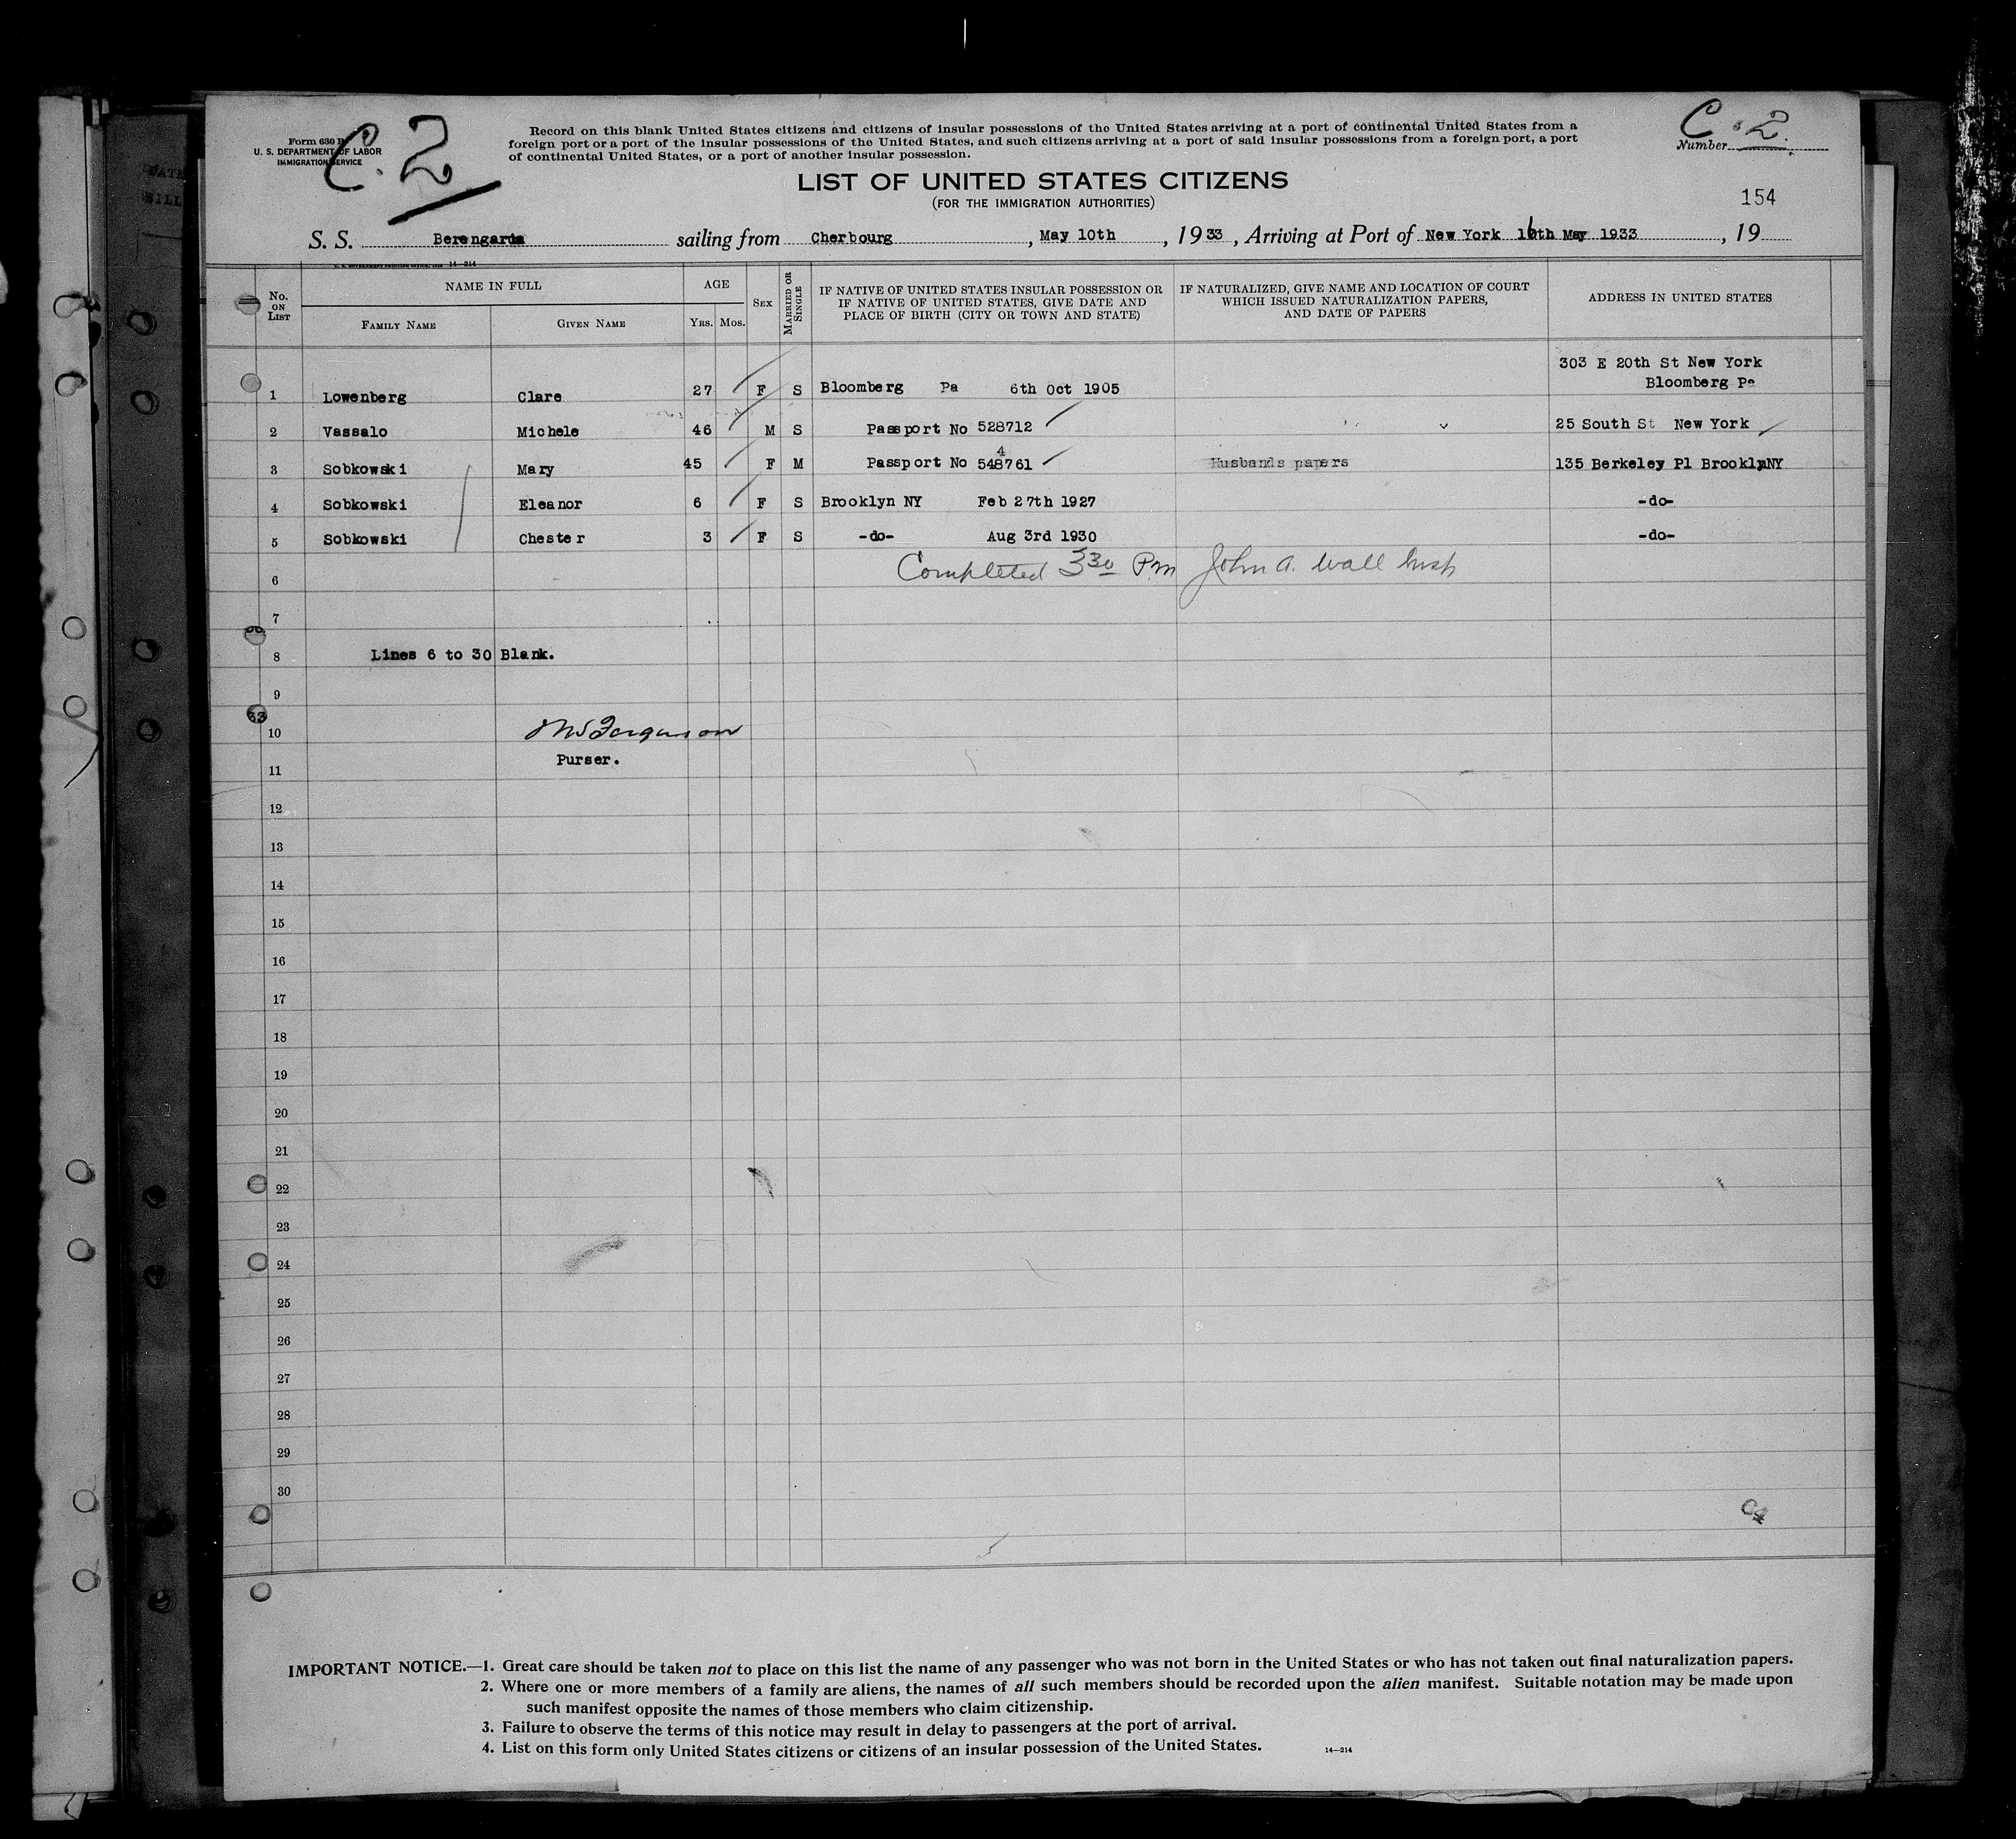 Form 630 B
U. S. DEPARTMENT OF LABOR
IMMIGRATION SERVICE
C. 2
Record on this blank United States citizens and citizens of insular possessions of the United States arriving at a port of continental United States from a
foreign port or a port of the insular possessions of the United States, and such citizens arriving at a port of said insular possessions from a foreign port, a port
of continental United States, or a port of another insular possession.
C. 2.
Number
LIST OF UNITED STATES CITIZENS
(FOR THE IMMIGRATION AUTHORITIES)
154
S. S. Berengaria sailing from Cherbourg, May 10th, 1933, Arriving at Port of New York 16th May 1933, 19
14—214
No. ON LIST NAME IN FULL FAMILY NAME GIVEN NAME AGE YRS. MOS. SEX MARRIED OR SINGLE IF NATIVE OF UNITED STATES INSULAR POSSESSION OR IF NATIVE OF UNITED STATES, GIVE DATE AND PLACE OF BIRTH (CITY OR TOWN AND STATE) IF NATURALIZED, GIVE NAME AND LOCATION OF COURT WHICH ISSUED NATURALIZATION PAPERS, AND DATE OF PAPERS ADDRESS IN UNITED STATES
303 E 20th St New York
1 Lowenberg Clare 27 F S Bloomberg Pa 6th Oct 1905 Bloomberg Pa
2 Vassalo Michele 46 M S Passport No 528712 25 South St New York
4
3 Sobkowski Mary 45 F M Passport No 548761 Husbands papers 135 Berkeley Pl Brooklyn NY
4 Sobkowski Eleanor 6 F S Brooklyn NY Feb 27th 1927 -do-
5 Sobkowski Chester 3 F S -do- Aug 3rd 1930 -do-
6 Completed 3 30 P.m John A. Wall Insp
7
8 Lines 6 to 30 Blank.
9
33
10
Purser.
11
12
13
14
15
16
17
18
19
20
21
22
23
24
25
26
27
28
29
30
C4
IMPORTANT NOTICE.—1. Great care should be taken not to place on this list the name of any passenger who was not born in the United States or who has not taken out final naturalization papers.
2. Where one or more members of a family are aliens, the names of all such members should be recorded upon the alien manifest. Suitable notation may be made upon
such manifest opposite the names of those members who claim citizenship.
3. Failure to observe the terms of this notice may result in delay to passengers at the port of arrival.
4. List on this form only United States citizens or citizens of an insular possession of the United States. 14—214